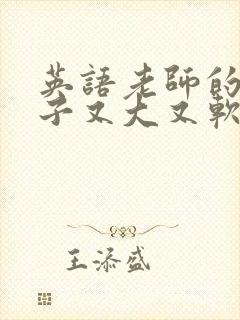 英語老師的
子又大又軟
王添盛